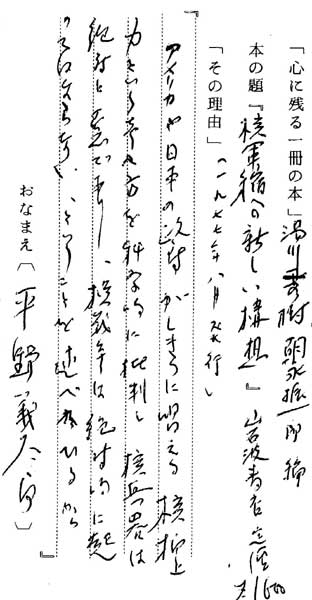 「心に残る一冊の本」湯川秀樹 朝永振一郎 編
本の題『核軍縮への新しい構想』岩波書店 定価
(一九七七年八月 発行)
「その理由」
『アメリカや日本の政府がしきりに唱える核抑止
力という考え方を科学的に批判し核兵器は
絶対と悪であり、核戦争は絶対的に起
ってはならない、ということを述べているから
』
おなまえ〔平野義太郎〕